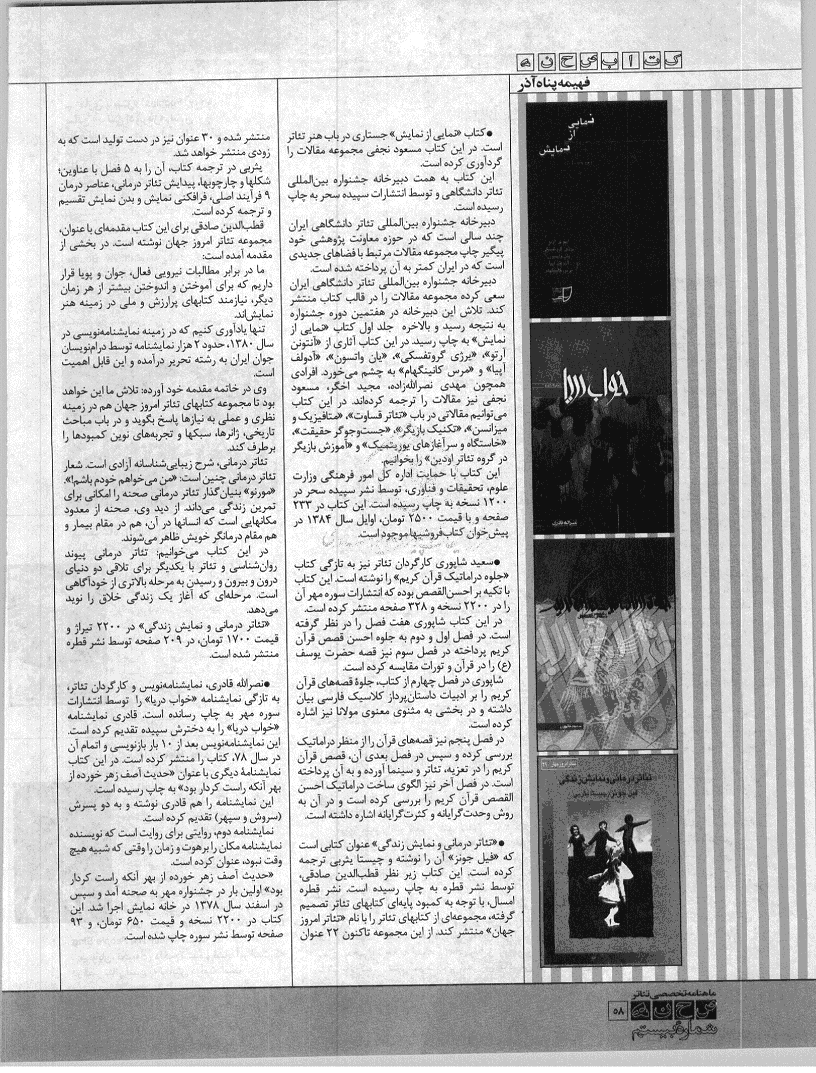 کتاب صحنه
فهیمه پناه آذر
نمایی
از
نمایش
خواب دریا
نصرالله قادری
تئاتر درمانی و نمایش زندگی
فیل جونز/چیستا یثربی
●کتاب «نمایی از نمایش» جستاری در باب هنر تئاتر
است. در این کتاب مسعود نجفی مجموعه مقالات را
گردآوری کرده است.
این کتاب به همت دبیرخانه جشنواره بین‌المللی
تئاتر دانشگاهی و توسط انتشارات سپیده سحر به چاپ
رسیده است.
دبیرخانه جشنواره بین‌المللی تئاتر دانشگاهی ایران
چند سالی است که در حوزه معاونت پژوهشی خود
پیگیر چاپ مجموعه مقالات مرتبط با فضاهای جدیدی
است که در ایران کمتر به آن پرداخته شده است.
دبیرخانه جشنواره بین‌المللی تئاتر دانشگاهی ایران
سعی کرده مجموعه مقالات را در قالب کتاب منتشر
کند. تلاش این دبیرخانه در هفتمین دوره جشنواره
به نتیجه رسید و بالاخره جلد اول کتاب «نمایی از
نمایش» به چاپ رسید. در این کتاب آثاری از «آنتونن
آرتو»، «یرژی گروتفسکی»، «یان واتسون»، «آدولف
آپیا» و «مرس کانینگهام» به چشم می‌خورد. افرادی
همچون مهدی نصرالله‌زاده، مجید اخگر، مسعود
نجفی نیز مقالات را ترجمه کرده‌اند. در این کتاب
می‌توانیم مقالاتی در باب «تئاتر قساوت»، «متافیزیک و
میزانسن»، «تکنیک بازیگر»، «جست‌وجوگر حقیقت»،
«خاستگاه و سرآغازهای یوریتمیک» و «آموزش بازیگر
در گروه تئاتر اودین» را بخوانیم.
این کتاب با حمایت اداره کل امور فرهنگی وزارت
علوم، تحقیقات و فناوری، توسط نشر سپیده سحر در
۱۲۰۰ نسخه به چاپ رسیده است. این کتاب در ۲۳۳
صفحه و با قیمت ۲۵۰۰ تومان، اوایل سال ۱۳۸۴ در
پیش‌خوان کتاب‌فروشیها موجود است.
●سعید شاپوری کارگردان تئاتر نیز به تازگی کتاب
«جلوه دراماتیک قرآن کریم» را نوشته است. این کتاب
با تکیه بر احسن‌القصص بوده که انتشارات سوره مهر آن
را در ۲۲۰۰ نسخه و ۳۲۸ صفحه منتشر کرده است.
در این کتاب شاپوری هفت فصل را در نظر گرفته
است. در فصل اول و دوم به جلوه احسن قصص قرآن
کریم پرداخته در فصل سوم نیز قصه حضرت یوسف
(ع) را در قرآن و تورات مقایسه کرده است.
شاپوری در فصل چهارم از کتاب، جلوهٔ قصه‌های قرآن
کریم را بر ادبیات داستان‌پرداز کلاسیک فارسی بیان
داشته و در بخشی به مثنوی معنوی مولانا نیز اشاره
کرده است.
در فصل پنجم نیز قصه‌های قرآن را از منظر دراماتیک
بررسی کرده و سپس در فصل بعدی آن، قصص قرآن
کریم را در تعزیه، تئاتر و سینما آورده و به آن پرداخته
است. در فصل آخر نیز الگوی ساخت دراماتیک احسن
القصص قرآن کریم را بررسی کرده است و در آن به
روش وحدت‌گرایانه و کثرت‌گرایانه اشاره داشته است.
●«تئاتر درمانی و نمایش زندگی» عنوان کتابی است
که «فیل جونز» آن را نوشته و چیستا یثربی ترجمه
کرده است. این کتاب زیر نظر قطب‌الدین صادقی،
توسط نشر قطره به چاپ رسیده است. نشر قطره
امسال، با توجه به کمبود پایه‌ای کتابهای تئاتر تصمیم
گرفته، مجموعه‌ای از کتابهای تئاتر را با نام «تئاتر امروز
جهان» منتشر کند. از این مجموعه تاکنون ۲۲ عنوان
منتشر شده و ۳۰ عنوان نیز در دست تولید است که به
زودی منتشر خواهد شد.
یثربی در ترجمه کتاب، آن را به ۵ فصل با عناوین؛
شکلها و چارچوبها، پیدایش تئاتر درمانی، عناصر درمان
۹ فرآیند اصلی، فرافکنی نمایش و بدن نمایش تقسیم
و ترجمه کرده است.
قطب‌الدین صادقی برای این کتاب مقدمه‌ای با عنوان،
مجموعه تئاتر امروز جهان نوشته است. در بخشی از
مقدمه آمده است:
ما در برابر مطالبات نیرویی فعال، جوان و پویا قرار
داریم که برای آموختن و اندوختن بیشتر از هر زمان
دیگر، نیازمند کتابهای پرارزش و ملی در زمینه هنر
نمایش‌اند.
تنها یادآوری کنیم که در زمینه نمایشنامه‌نویسی در
سال ۱۳۸۰، حدود ۲ هزار نمایشنامه توسط درام‌نویسان
جوان ایران به رشته تحریر درآمده و این قابل اهمیت
است.
وی در خاتمه مقدمه خود آورده: تلاش ما این خواهد
بود تا مجموعه کتابهای تئاتر امروز جهان هم در زمینه
نظری و عملی به نیازها پاسخ بگوید و در باب مباحث
تاریخی، ژانرها، سبکها و تجربه‌های نوین کمبودها را
برطرف کند.
تئاتر درمانی، شرح زیبایی‌شناسانه آزادی است. شعار
تئاتر درمانی چنین است: «من می‌خواهم خودم باشم!».
«مورنو» بنیان‌گذار تئاتر درمانی صحنه را امکانی برای
تمرین زندگی می‌داند. از دید وی، صحنه از معدود
مکانهایی است که انسانها در آن، هم در مقام بیمار و
هم مقام درمانگر خویش ظاهر می‌شوند.
در این کتاب می‌خوانیم؛ تئاتر درمانی پیوند
روان‌شناسی و تئاتر با یکدیگر برای تلاقی دو دنیای
درون و بیرون و رسیدن به مرحله بالاتری از خودآگاهی
است. مرحله‌ای که آغاز یک زندگی خلاق را نوید
می‌دهد.
«تئاتر درمانی و نمایش زندگی» در ۲۲۰۰ تیراژ و
قیمت ۱۷۰۰ تومان، در ۲۰۹ صفحه توسط نشر قطره
منتشر شده است.
●نصرالله قادری، نمایشنامه‌نویس و کارگردان تئاتر،
به تازگی نمایشنامه «خواب دریا» را توسط انتشارات
سوره مهر به چاپ رسانده است. قادری نمایشنامه
«خواب دریا» را به دخترش سپیده تقدیم کرده است.
این نمایشنامه‌نویس بعد از ۱۰ بار بازنویسی و اتمام آن
در سال ۷۸، کتاب را منتشر کرده است. در این کتاب
نمایشنامهٔ دیگری با عنوان «حدیث آصف زهر خورده از
بهر آنکه راست کردار بود» به چاپ رسیده است.
این نمایشنامه را هم قادری نوشته و به دو پسرش
(سروش و سپهر) تقدیم کرده است.
نمایشنامه دوم، روایتی برای روایت است که نویسنده
نمایشنامه مکان را برهوت و زمان را وقتی که شبیه هیچ
وقت نبود، عنوان کرده است.
«حدیث آصف زهر خورده از بهر آنکه راست کردار
بود» اولین بار در جشنواره مهر به صحنه آمد و سپس
در اسفند سال ۱۳۷۸ در خانه نمایش اجرا شد. این
کتاب در ۲۲۰۰ نسخه و قیمت ۶۵۰ تومان، و ۹۳
صفحه توسط نشر سوره چاپ شده است.
ماهنامه تخصصی تئاتر
صحنه
شماره بیستم
۵۸